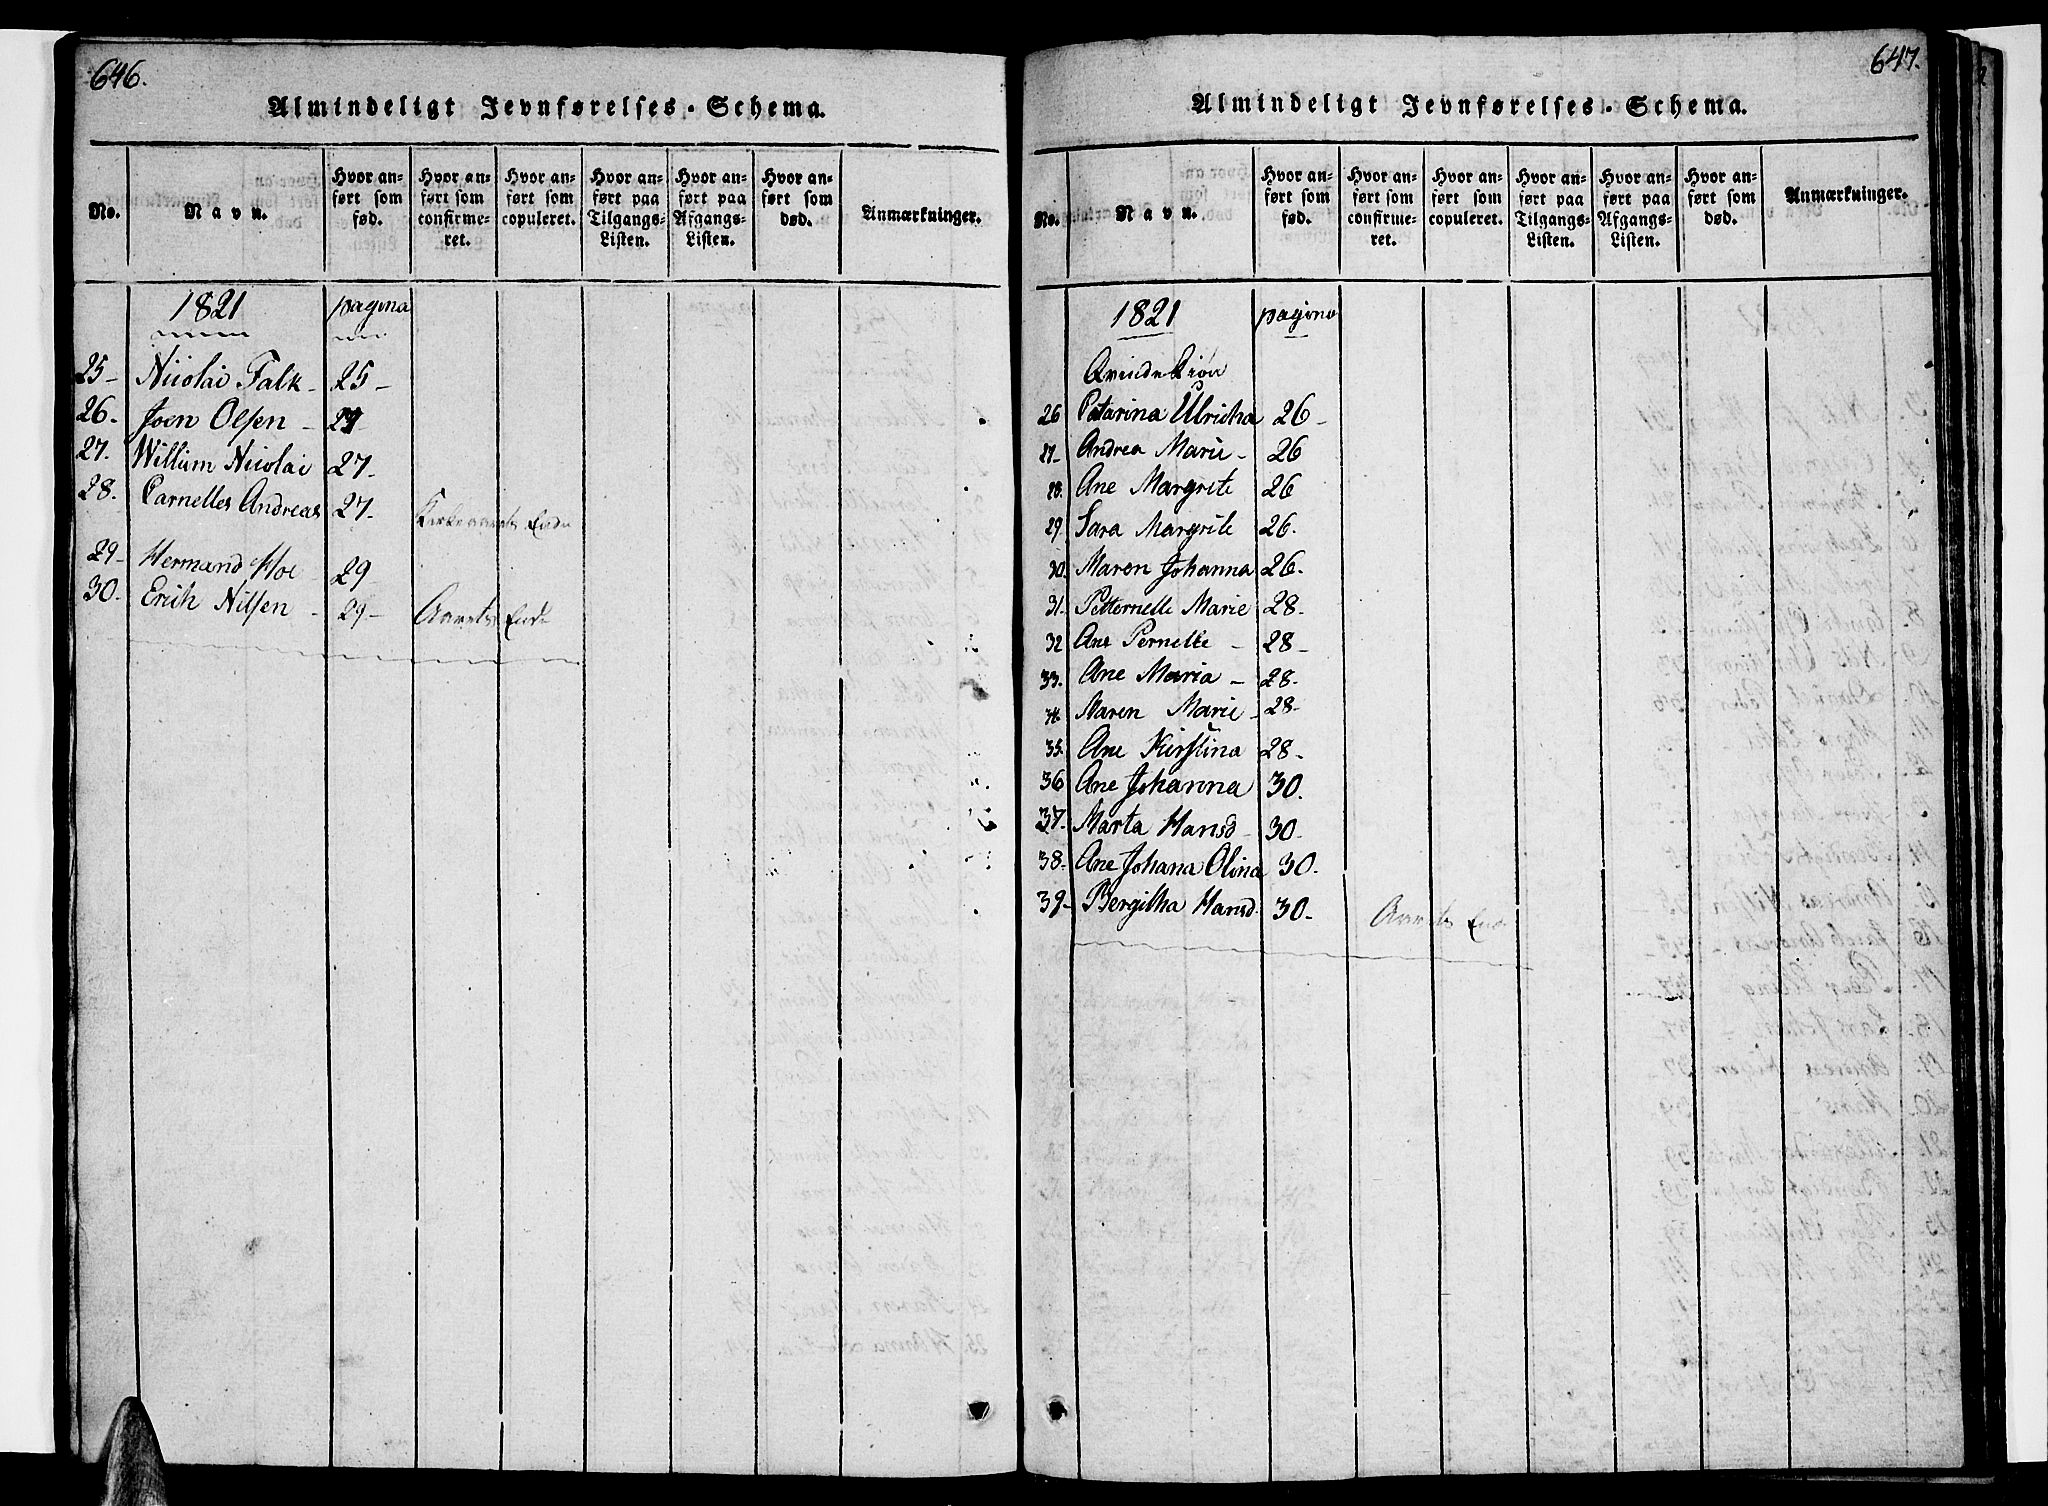 646.
Almindeligt Jevnførelses-Schema.
No. Navn. Hvor anført som fød. Hvor anført som confirmeret. Hvor anført som copuleret. Hvor anført paa Tilgangs-Listen. Hvor anført paa Afgangs-Listen. Hvor anført som død. Anmærkninger.
1821 pagina
25- Nicolai Falk- 25-
26. Joen Olsen -
27. Willum Nicolai 27-
28. Carnelles Andreas 27- Kirkeaarets Ende
29- Hermand Moe 29
30. Erich Nilsen - 29- Aarets Ende
647.
Almindeligt Jevnførelses-Schema.
No. Navn. Hvor anført som fød. Hvor anført som confirmeret. Hvor anført som copuleret. Hvor anført paa Tilgangs-Listen. Hvor anført paa Afgangs-Listen. Hvor anført som død. Anmærkninger.
1821 pagina
Qvindekiøn
26 Catarina Ulricha 26-
27- Andrea Marie- 26
28. Ane Margrete 26
29. Sara Margrete 26.
30. Maren Johanna 26.
31- Petternelle Marie 28-
32 Ane Pernelle - 28-
33. Ane Maria - 28-
34. Maren Marie- 28-
35. Ane Kirstina 28-
36 Ane Johanna 30.
37- Marta Hansd- 30-
38- Ane Johana Olina 30.
39- Bergitha Hansd. 30- Aarets Ende